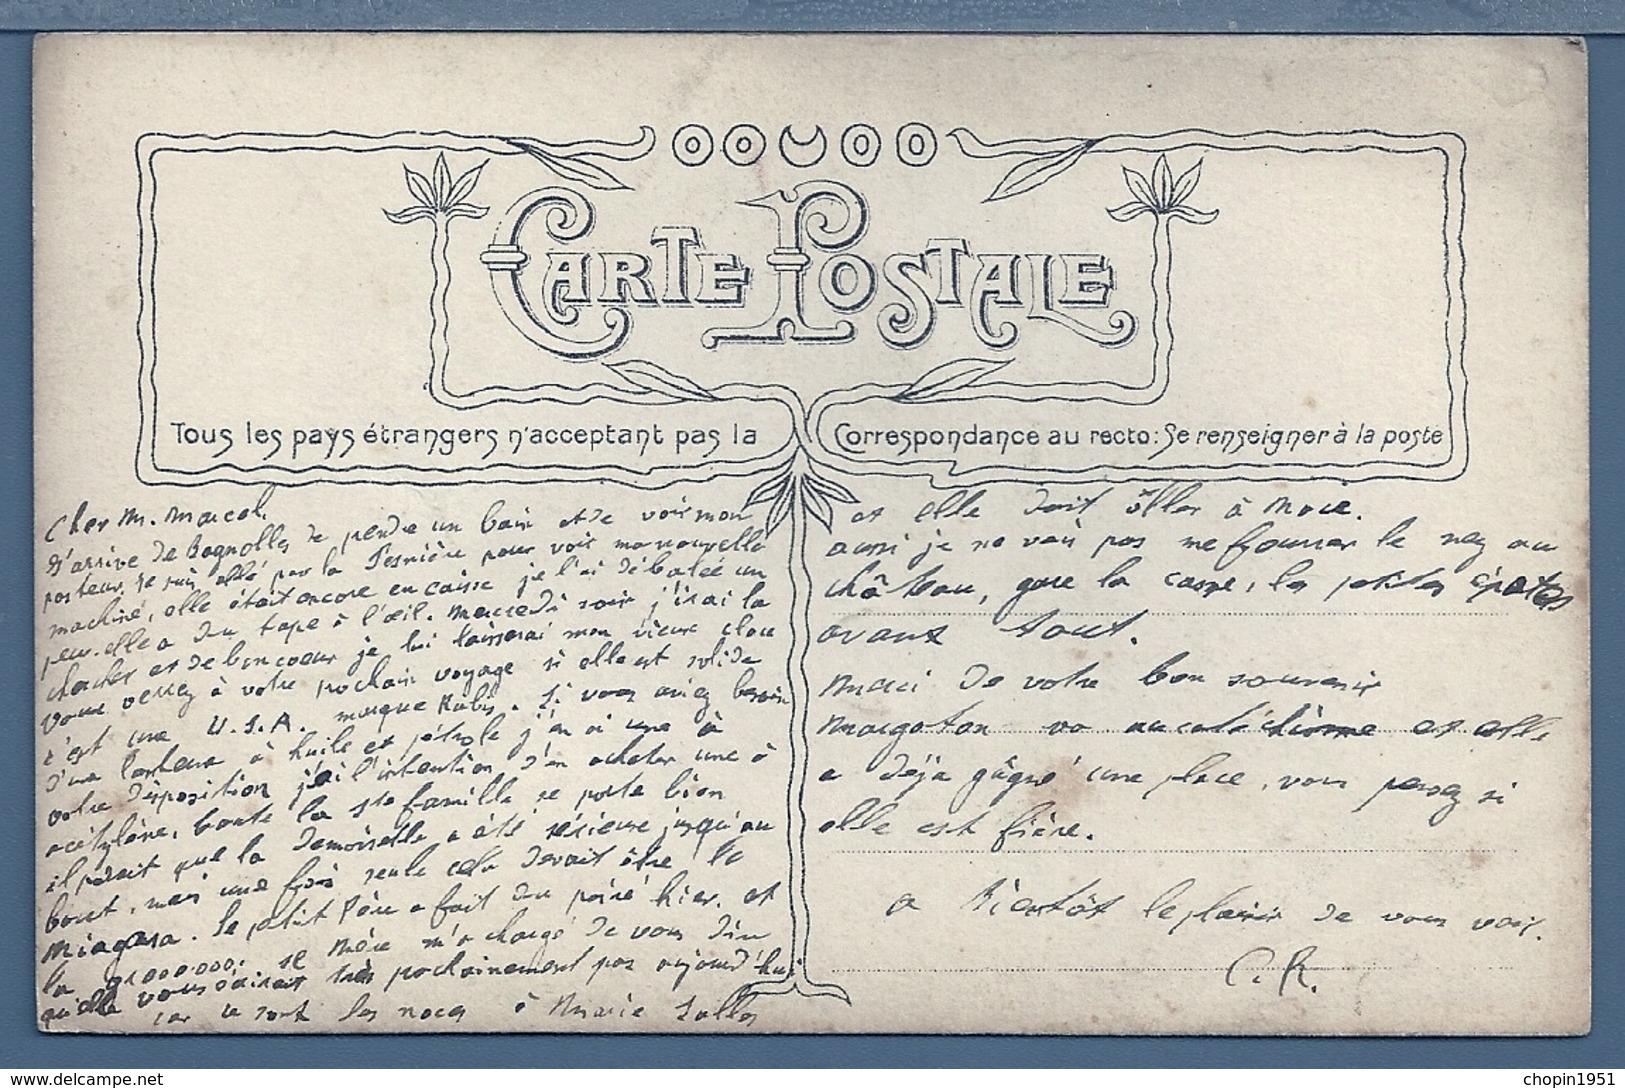 CARTE POSTALE
Tous les pays étrangers n'acceptant pas la Correspondance au recto: Se renseigner à la poste
Cher M. Marcel.
J'arrive de Bagnolles de pendre un bain et de voir mon
posteur. Je suis allé par la Fesnière pour voir ma nouvelle
machine, elle était encore en caisse je l'ai débalée un
peu. elle a du tape à l'œil. Mercredi soir j'irai la
chercher et de bon coeur je lui laisserai mon vieux clou
vous verrez à votre prochain voyage si elle est solide
c'est une U.S.A. marque Rubis. Si vous aviez besoin
d'une lanterne à huile et pétrole j'en ai une à
votre disposition j'ai l'intention d'en acheter une à
acétylène, toute la Ste famille se porte bien
il parait que la demoiselle a été sérieuse jusqu'au
bout, mais une fois seule cela devait être le
Niagara. Le petit Père a fait du poiré hier. et
la 91000.000. se Mère m'a chargé de vous dire
qu'elle vous écrirait très prochainement pas aujourd'hui
car ce sont les noces à Marie Salles
et elle doit aller à Macé.
aussi je ne vais pas me fourrer le nez au
château, gare la casse, les petites
avant tout.
Merci de votre bon souvenir
Margoton va au catéchisme et elle
a déja gagné une place, vous pensez si
elle est fière.
a Bientôt le plaisir de vous voir.
C.R.
chopin1951
https://www.delcampe.net